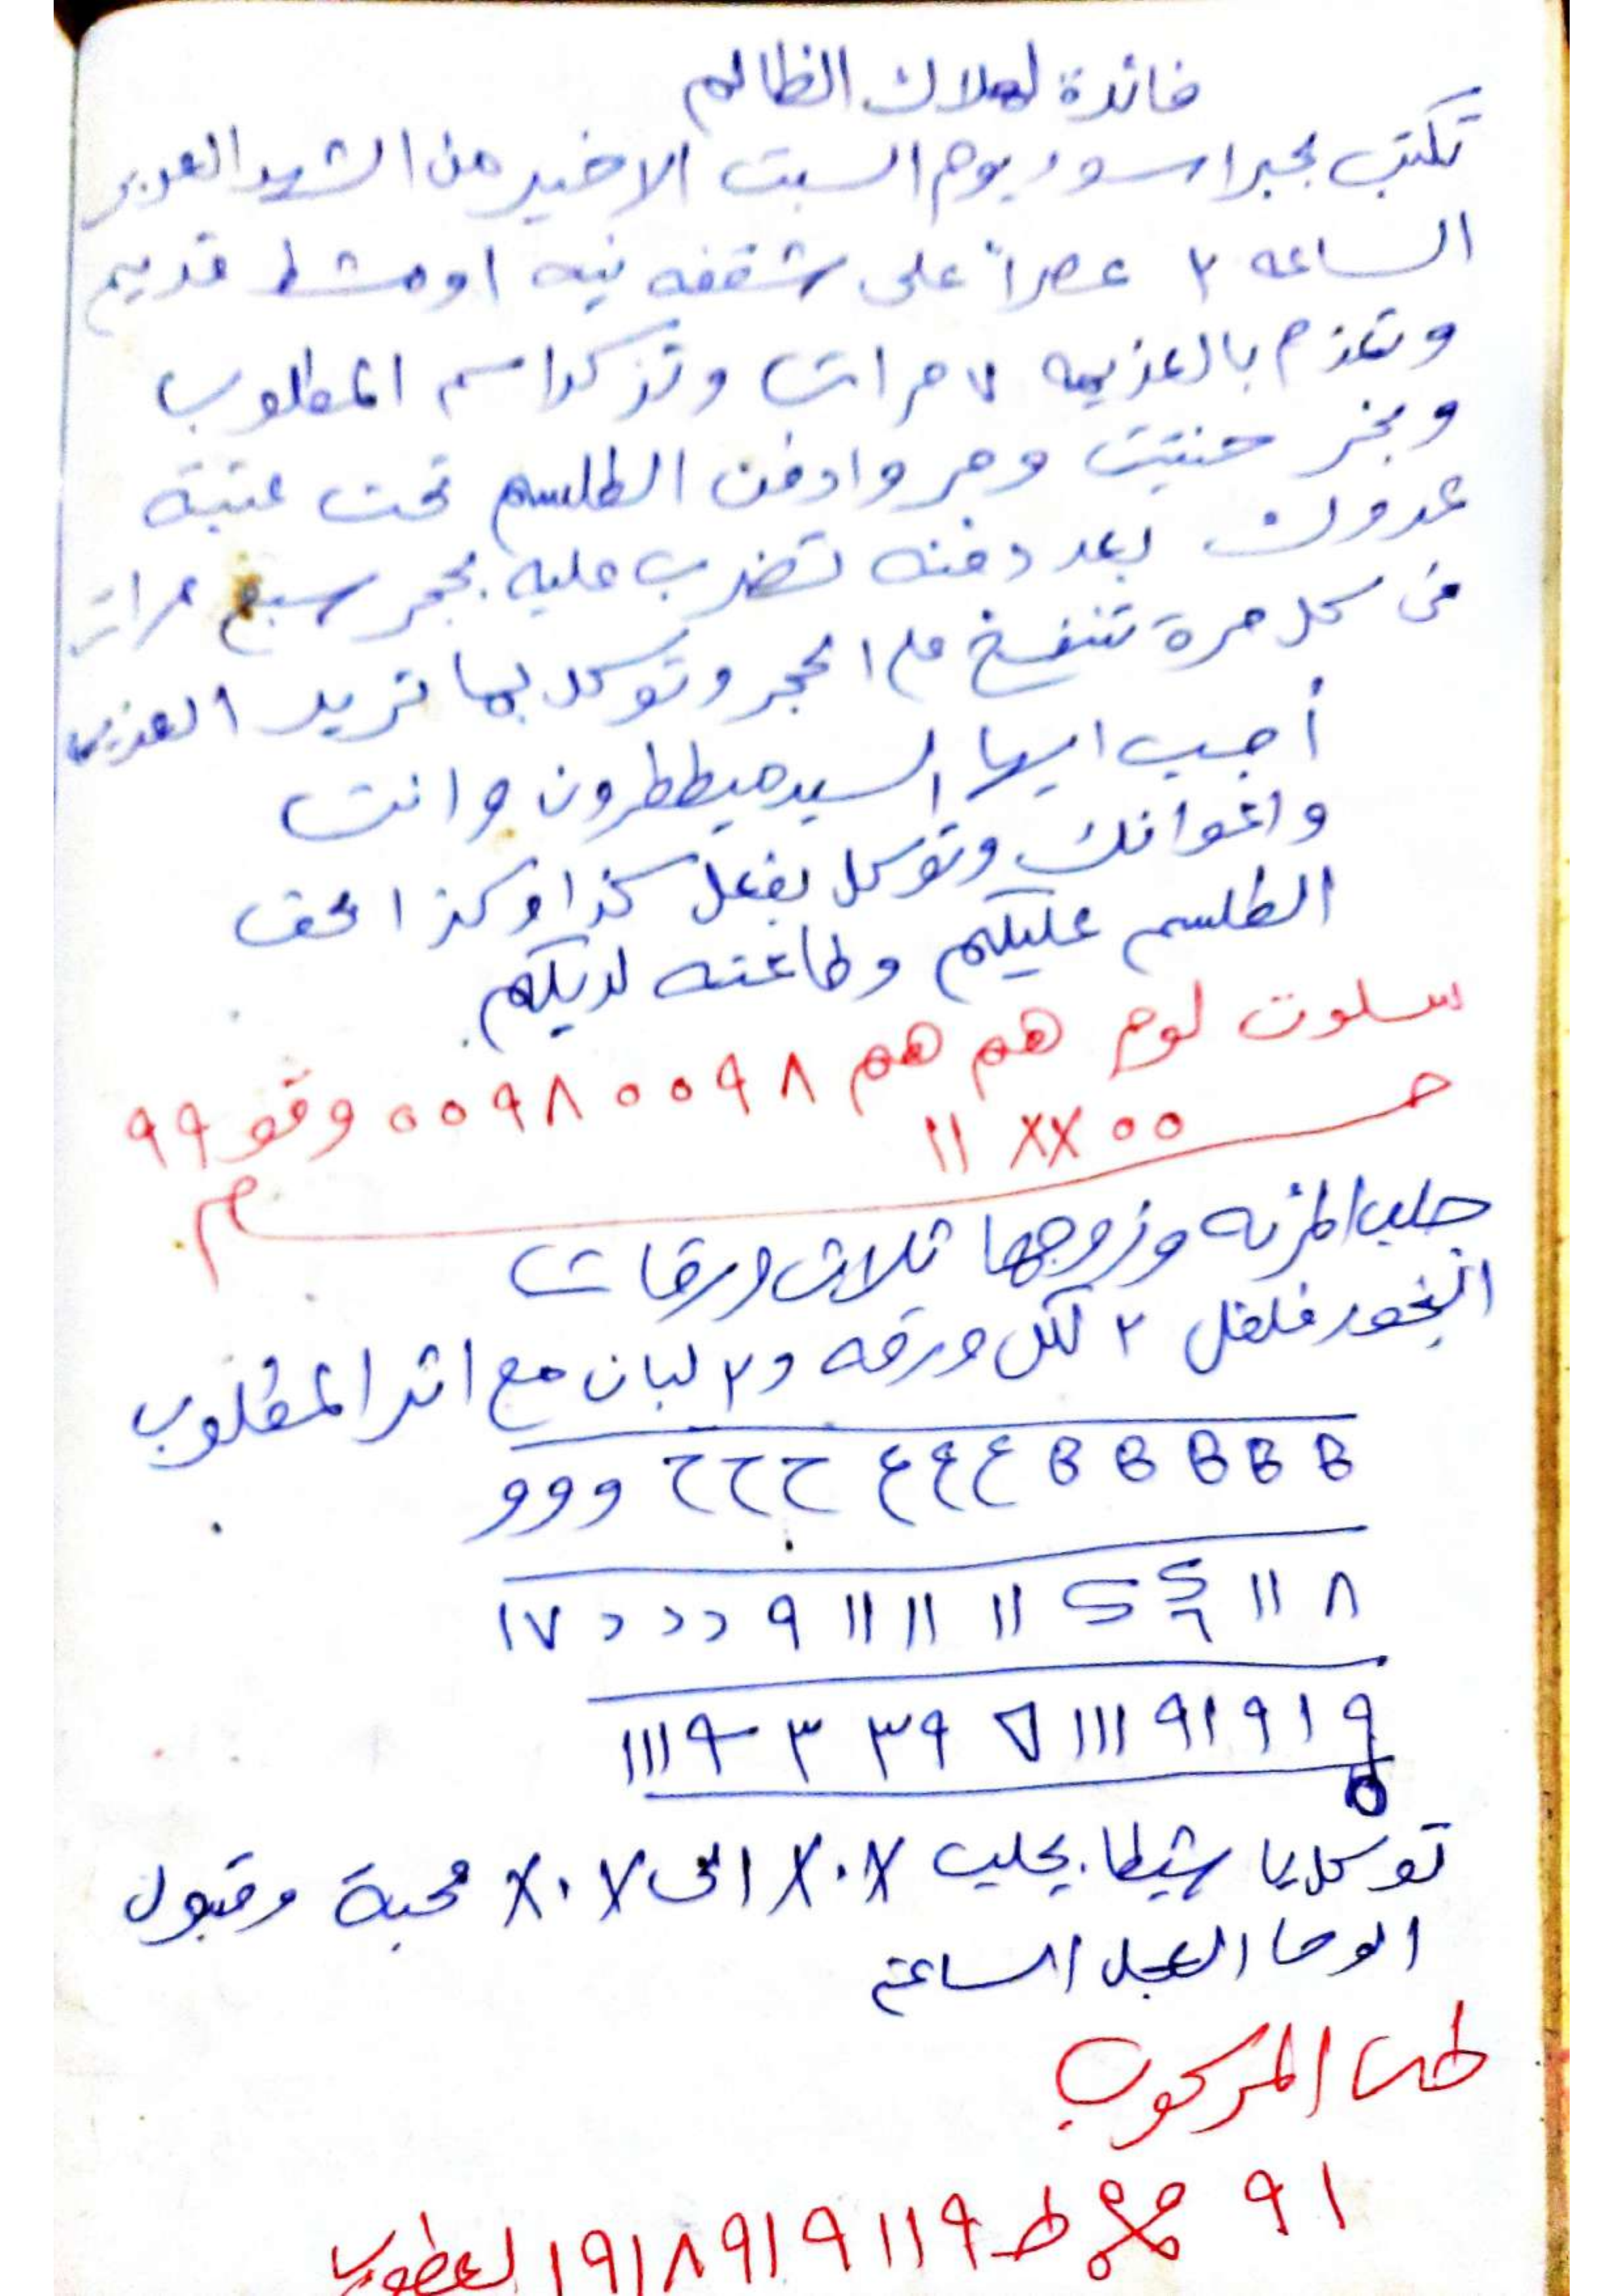 فائدة لهلاك الظالم
تكتب بحبر اسود يوم السبت الاخير من الشهر العربي
الساعه ٢ عصراً على شقفه نيه او مشط قديم
وتعزم بالعزيمه ٧ مرات وتذكر اسم المطلوب
وبخر حنتيت ومر وادفن الطلسم تحت عتبة
عدوك بعد دفنه تضرب عليه بحجر سبع مرات
في كل مرة تنفخ على الحجر وتوكل بما تريد العزيمه
أجب ايها السيد ميططرون وانت
واعوانك وتوكل بفعل كذا وكذا بحق
الطلسم عليكم وطاعته لديكم
سلوت لوم هم هم ٩٨ ٠٠ ٩٨ ٠٠ وقو ٩٩
٠٠ XX ١١
جلب المرئه وزوجها ثلاث ورقات
البخور فلفل ٢ لكل ورقه و٢ لبان مع اثر المطلوب
B B B B B ع ع ع ح ح ح و و و
٨ ١١ ١١ ١١ ١١ ٩ د د د ١٧
٩ ١ ٩ ١ ٩١ ١١١ ٣٩ ٣ ٩ ١١١
توكل يا شيطا. يجلب X٠X الى X٠X محبة وقبول
الوحا العجل الساعة
المركوب
٩١ ط ١٩١٨٩١٩١١٩